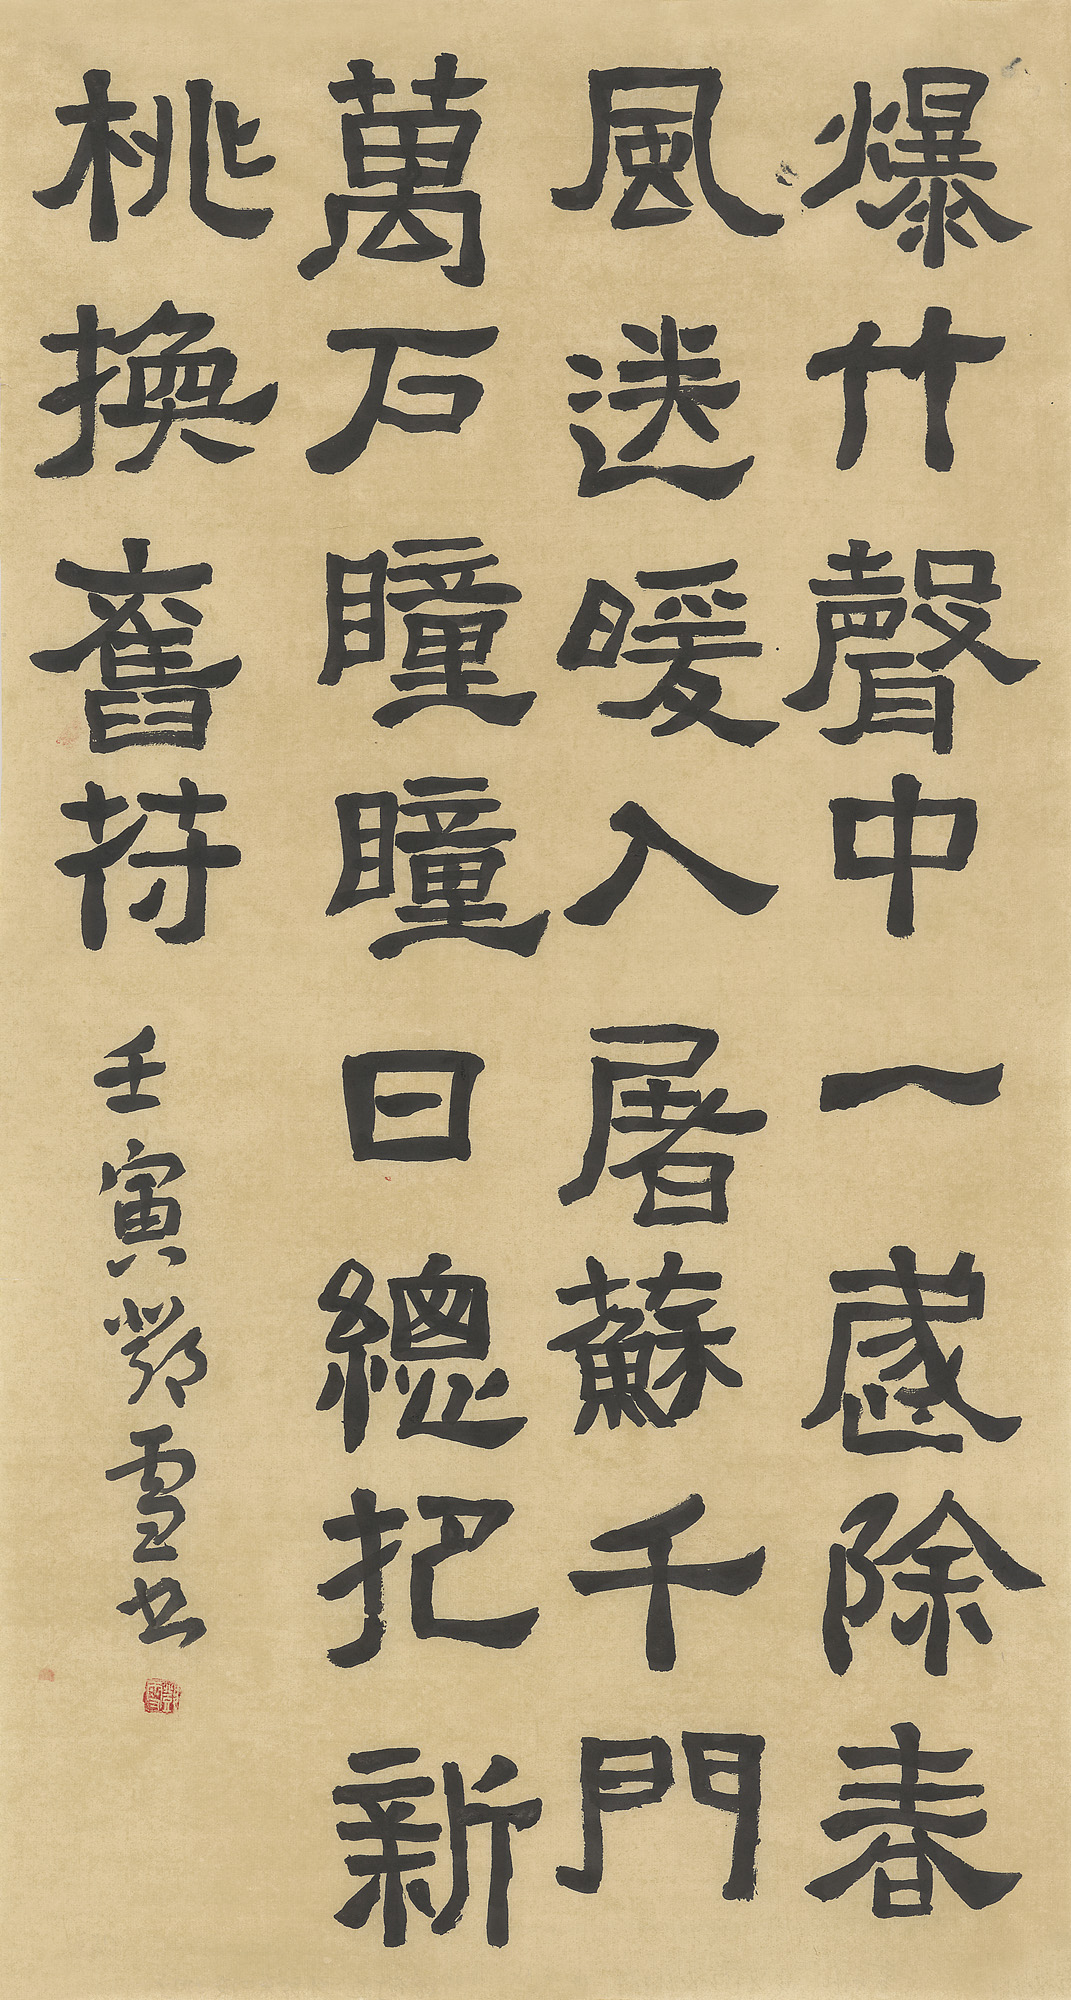 爆竹聲中一歲除春
風送暖入屠蘇千門
萬石瞳瞳日總把新
桃換舊符
壬寅鄧雪书